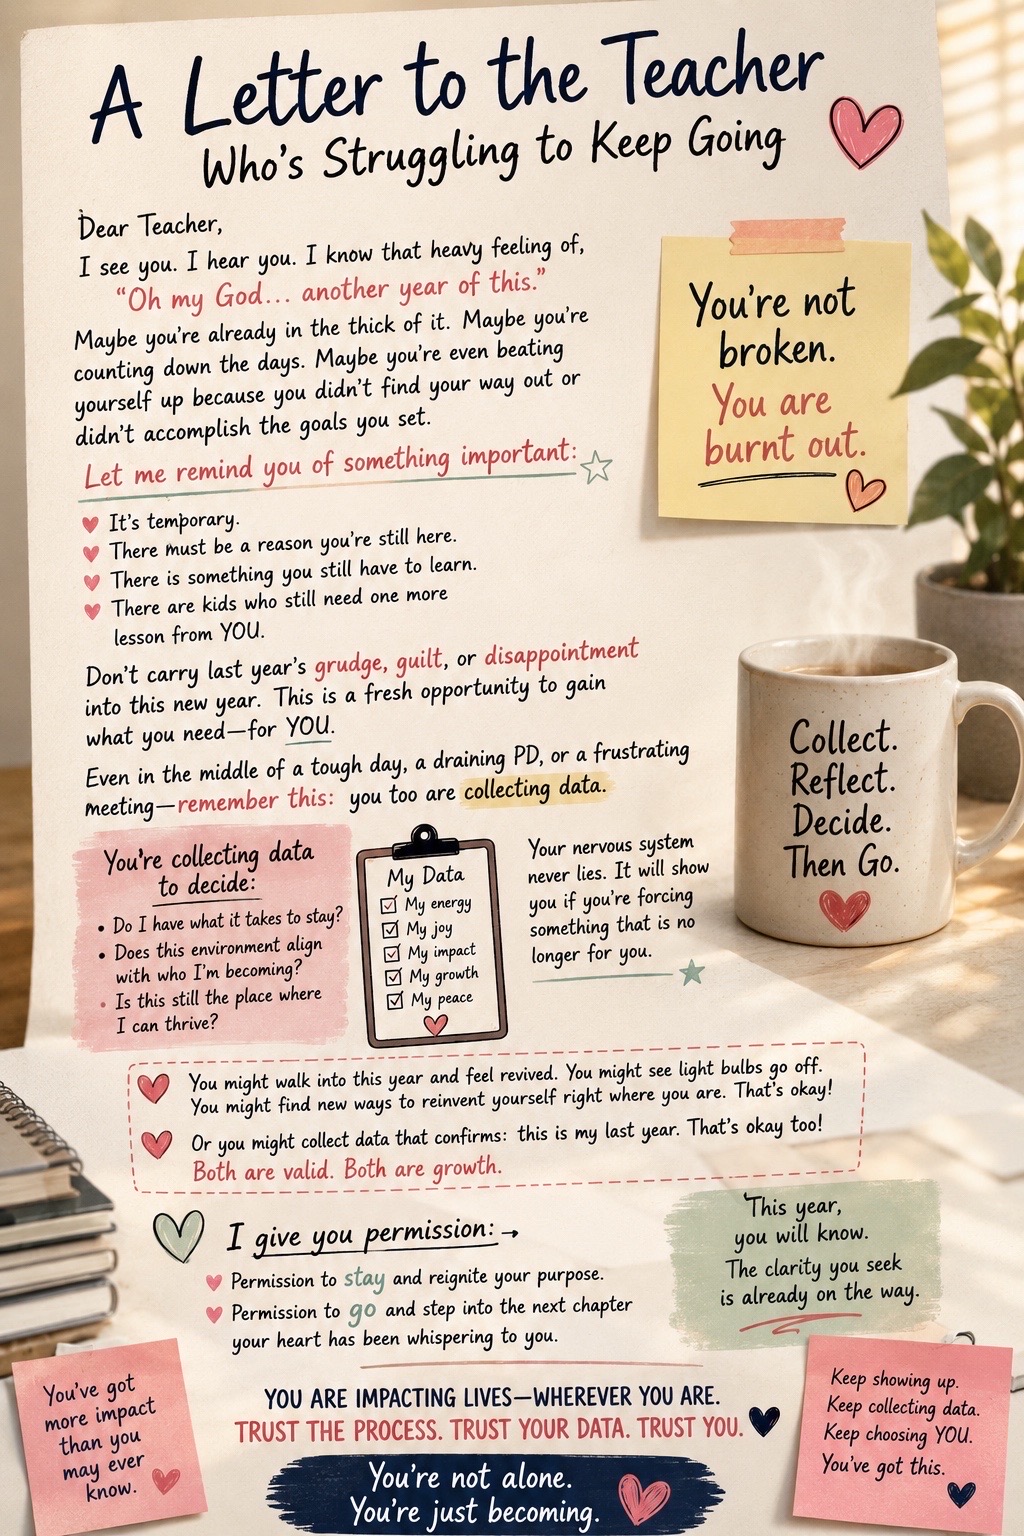 A Letter to the Teacher
Who's Struggling to Keep Going
Dear Teacher,
I see you. I hear you. I know that heavy feeling of,
"Oh my God... another year of this."
Maybe you're already in the thick of it. Maybe you're
counting down the days. Maybe you're even beating
yourself up because you didn't find your way out or
didn't accomplish the goals you set.
Let me remind you of something important:
You're not
broken.
You are
burnt out.
It's temporary.
There must be a reason you're still here.
There is something you still have to learn.
There are kids who still need one more
lesson from YOU.
Don't carry last year's grudge, guilt, or disappointment
into this new year. This is a fresh opportunity to gain
what you need—for YOU.
Even in the middle of a tough day, a draining PD, or a frustrating
meeting—remember this: you too are collecting data.
Collect.
Reflect.
Decide.
Then Go.
You're collecting data
to decide:
• Do I have what it takes to stay?
• Does this environment align
with who I'm becoming?
• Is this still the place where
I can thrive?
My Data
My energy
My joy
My impact
My growth
My peace
Your nervous system
never lies. It will show
you if you're forcing
something that is no
longer for you.
You might walk into this year and feel revived. You might see light bulbs go off.
You might find new ways to reinvent yourself right where you are. That's okay!
Or you might collect data that confirms: this is my last year. That's okay too!
Both are valid. Both are growth.
I give you permission:→
Permission to stay and reignite your purpose.
Permission to go and step into the next chapter
your heart has been whispering to you.
This year,
you will know.
The clarity you seek
is already on the way.
You've got
more impact
than you
may ever
know.
YOU ARE IMPACTING LIVES—WHEREVER YOU ARE.
TRUST THE PROCESS. TRUST YOUR DATA. TRUST YOU.
You're not alone.
You're just becoming.
Keep showing up.
Keep collecting data.
Keep choosing YOU.
You've got this.